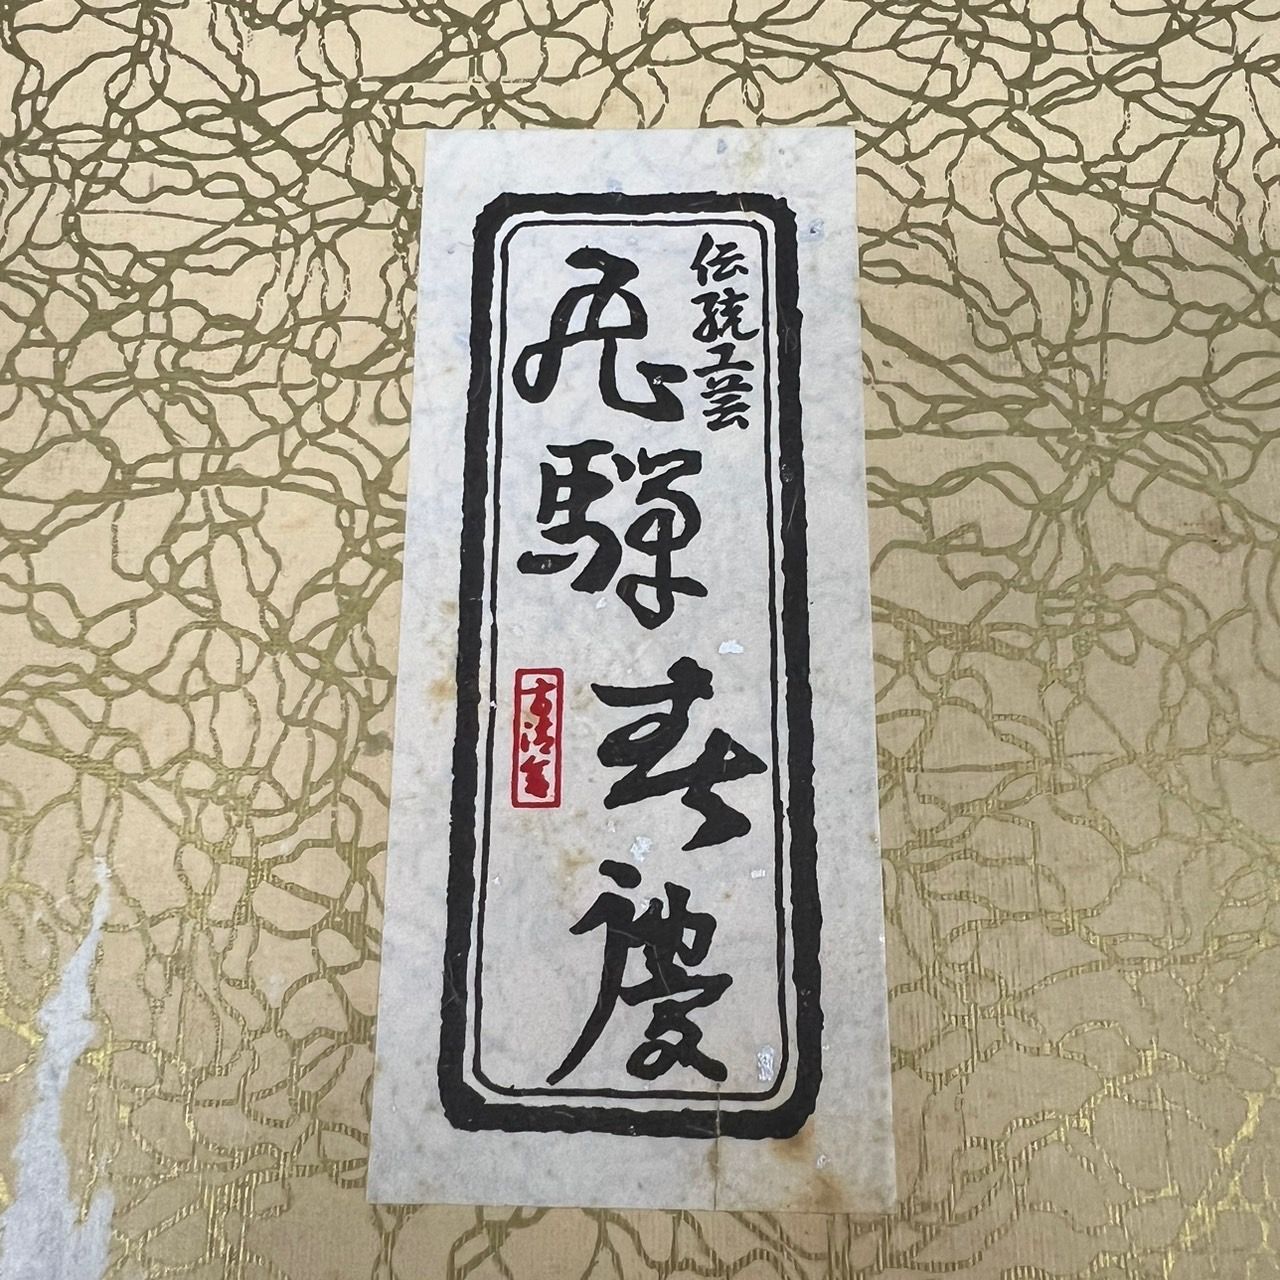 伝統工芸
飛騨春慶